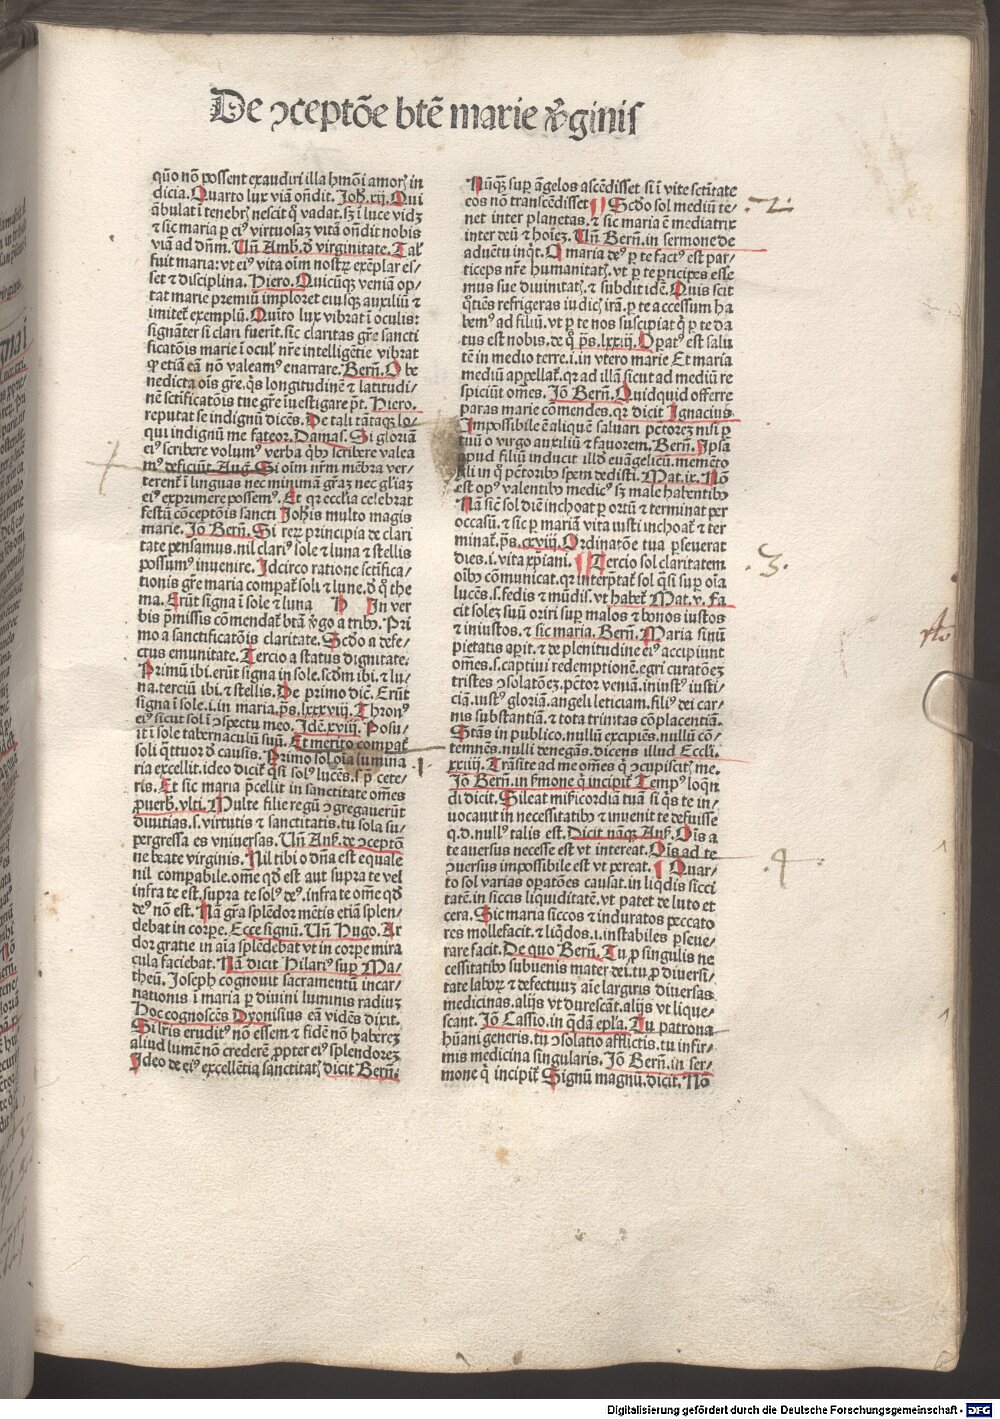 De ↄceptōe btē marie v̓ginis
quō nō possent exaudiri illa hmōi amor in
dicia. Quarto lux viā oñdit. Joh. xij. Qui
ābulat ī tenebr̄ nescit q̇ vadat. sꝫ ī luce vidꝫ
⁊ sic maria ꝑ eiꝰ virtuosaꝫ vitā oñdit nobis
viā ad dn̄m. Uñ Amb. d̓ virginitate. Tal
fuit maria: vt eiꝰ vita oīm nostrꝝ exēplar es/
set ⁊ disciplina. Hiero. Quicūqꝫ veniā op/
tat marie premiū imploret eiusqꝫ auxiliū ⁊
imitet exemplū. Quito lux vibrat ī oculis:
signāter si clari fuerīt. sic claritas gr̄e sancti
ficatōis marie ī ocul nr̄e intelligētie vibrat
ꝙ etiā eā nō valeamꝰ enarrare. Berñ. O be
nedicta oīs gr̄e. q̇s longitudinē ⁊ latitudi/
nē sctificatōis tue gr̄e īuestigare pt̄. Hiero.
reputat se indignū dicēs. De tali tātaqꝫ lo/
qui indignū me fateor. Damas. Si gloriā
eiꝰ scribere volumꝰ verba q̇bꝰ scribere valea
mꝰ deficiūt. Aug. Si oīm nr̄m mēbra ver/
terent ī linguas nec minimā gr̄aꝫ nec gl̄iaꝫ
eiꝰ exprimere possemꝰ. Et qꝛ eccl̄ia celebrat
festū cōceptōis sancti Johīs multo magis
marie. Jō Berñ. Si rerꝝ principia de clari
tate pensamus. nil clariꝰ sole ⁊ luna ⁊ stellis
possumꝰ inuenire. Idcirco ratione sctifica/
tionis gr̄e maria compat̄ soli ⁊ lune. d̓ q̇ the
ma. Erūt signa ī sole ⁊ luna In ver
bis p̄missis cōmendat̄ btā v̓go a tribꝰ. Pri
mo a sanctificatōis claritate. Scd̓o a defe/
ctus emunitate. Tercio a status dignitate.
Primū ibi. erūt signa in sole. scd̓m ibi. ⁊ lu/
na. terciū ibi. ⁊ stellis. De primo dic̄. Erūt
signa ī sole. i. in maria. ps̄. lxxxviij. Thronꝰ
eiꝰ sicut sol ī ↄspectu meo. Idē. xviij. Posu/
it ī sole tabernaculū suū. Et merito compat̄
soli q̇ttuor d̓ causis. Primo sol oīa lumina
ria excellit. ideo dicit̄ q̇si solꝰ lucēs. s. p̄ cete/
ris. Et sic maria p̄cellit in sanctitate om̄es
ꝓuerb. vlti. Multe filie regū ↄgregauerūt
diuitias. s. virtutis ⁊ sanctitatis. tu sola su/
pergressa es vniuersas. Uñ Anſ. de ↄceptōe
ne beate virginis. Nil tibi o dn̄a est equale
nil compabile. om̄e qd̓ est aut supra te vel
infra te est. supra te solꝰ deꝰ. infra te om̄e qd̓
deꝰ non est. Nā gr̄a splēdor mētis etiā splen/
debat in corꝑe. Ecce signū. Uñ Hugo. Ar
dor gratie in aīa splēdebat vt in corꝑe mira
cula faciebat. Nā dicit Hilariꝰ suꝑ Ma/
theū. Joseph cognouit sacramentū incar/
nationis ī maria ꝑ diuini luminis radiuꝫ
Hoc cognoscēs Dyonisius eā vidēs dixit.
Si lris eruditꝰ nō essem ⁊ fidē nō habereꝫ
aliud lumē nō crederē ꝓpter eiꝰ splendoreꝫ
Ideo de eiꝰ excellētia sanctitat̄ dicit Berñ.
Nūqꝫ suꝑ āgelos ascēdisset si ī vite sctitate
eos nō transcēdisset Scd̓o sol mediū te/
net inter planetas. ⁊ sic maria ē mediatrix
inter deū ⁊ hoīes. Uñ Berñ. in sermone de
aduētu inq̇t. O maria deꝰ ꝑ te factꝰ est par/
ticeps nr̄e humanitat̄. vt ꝑ te ꝑticipes esse
mus sue diuinitat̄. ⁊ subdit idē. Quis scit
q̇tiēs refrigeras iudic̄ irā. ꝑ te accessum ha
bemꝰ ad filiū. vt ꝑ te nos suscipiat q̇ ꝑ te da
tus est nobis. de q̇ ps̄. lxxiij. Opatꝰ est salu
tē in medio terre. i. in vtero marie Et maria
mediū appellat̄. qꝛ ad illā sicut ad mediū re
spiciūt om̄es. Jō Berñ. Quidquid offerre
paras marie cōmendes. qꝛ dicit Ignacius.
Impossibile ē aliquē saluari pctorez nisi ꝑ
tuū o virgo auxiliū ⁊ fauorem. Berñ. Ipsa
apud filiū inducit illd̓ euāgelicū. memēto
fili in q̇ pctoribꝰ spem dedisti. Mat. ix. Nō
est opꝰ valentibꝰ medicꝰ sꝫ male habentibꝰ
Nā sic̄ sol diē inchoat ꝑ ortū ⁊ terminat per
occasū. ⁊ sic ꝑ mariā vita iusti inchoat̄ ⁊ ter
minat̄. ps̄. cxviij. Ordinatōe tua ꝑseuerat
dies. i. vita xp̄iani. Tercio sol claritatem
oībꝰ cōmunicat. qꝛ interp̄tat̄ sol q̇si suꝑ oīa
lucēs. s. fedis ⁊ mūdis. vt habet̄ Mat. v. Fa
cit solez suū oriri suꝑ malos ⁊ bonos iustos
⁊ iniustos. ⁊ sic maria. Berñ. Maria sinū
pietatis aꝑit. ⁊ de plenitudine eiꝰ accipiunt
om̄es. s. captiui redemptionē. egri curatōeꝫ
tristes ↄsolatōeꝫ. pctor veniā. iniustꝰ iusti/
ciā. iustꝰ gloriā. angeli leticiam. filiꝰ dei car/
nis substantiā. ⁊ tota trinitas cōplacentiā.
Stās in publico. nullū excipiēs. nullū cō/
temnēs. nulli denegās. dicens illud Eccli.
xxiiij. Trāsite ad me om̄es q̇ ↄcupiscit̄ me.
Jō Berñ. in s̓mone q̇ incipit̄ Tempꝰ loqn̄
di dicit. Sileat mis̓icordiā tuā si q̇s te in/
uocauit in necessitatibꝰ ⁊ inuenit te defuisse
q. d. nullꝰ talis est. Dicit nāqꝫ Anſ. Oīs a
te auersus necesse est vt intereat. Oīs ad te
ↄuersus impossibile est vt pereat. Quar/
to sol varias opatōes causat. in liq̇dis sicci
tatē. in siccis liquiditatē. vt patet de luto et
cera. Sic maria siccos ⁊ induratos peccato
res mollefacit. ⁊ liq̇dos. i. instabiles ꝑseue/
rare facit. De quo Berñ. Tu ꝓ singulis ne
cessitatibꝰ subuenis mater dei. tu ꝓ diuersi/
tate laboꝝ ⁊ defectuū aīe largiris diuersas
medicinas. alijs vt durescāt. alijs vt lique/
scant. Jō Cassio. in q̇dā ep̄la. Tu patrona
hūani generis. tu ↄsolatio afflictis. tu infir/
mis medicina singularis. Jō Berñ. in ser/
mone q̇ incipit̄ Signū magnū. dicit. Nō
.2.
.3.
.1.
.4.
Digitalisierung gefördert durch die Deutsche Forschungsgemeinschaft - DFG